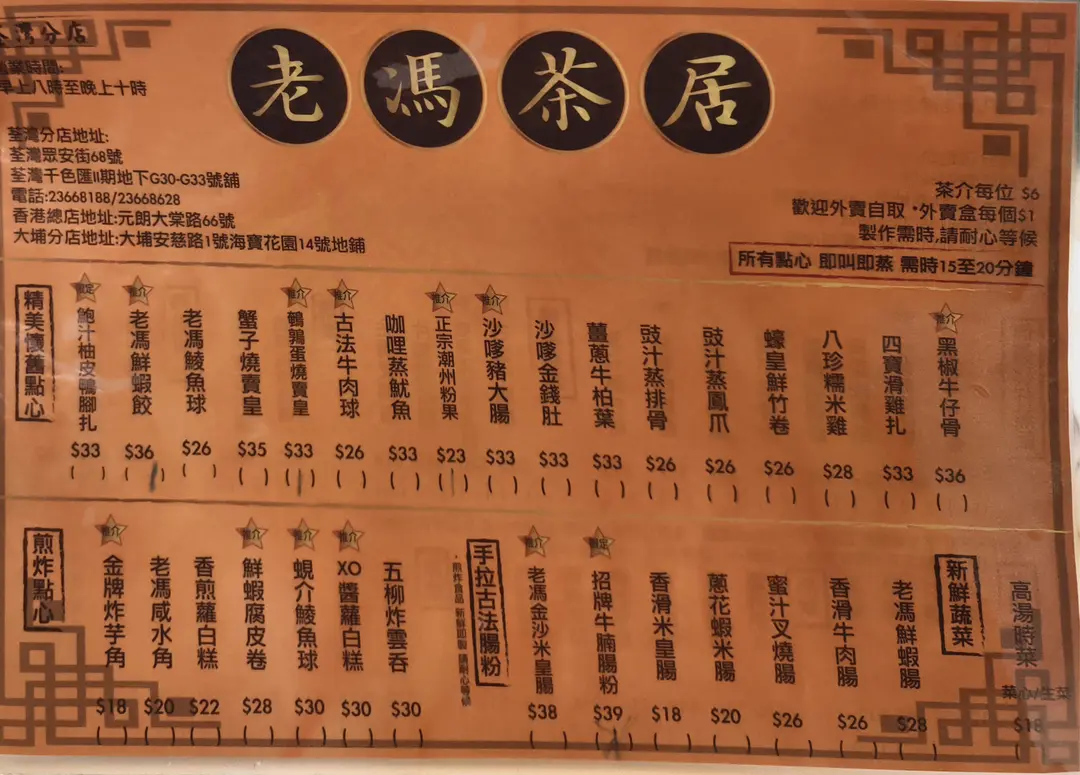 荃灣分店
營業時間:
早上八時至晚上十時
老馮茶居
荃灣分店地址:
荃灣眾安街68號
荃灣千色匯II期地下G30-G33號舖
電話:23668188/23668628
香港總店地址:元朗大棠路66號
大埔分店地址:大埔安慈路1號海寶花園14號地鋪
茶介每位 $6
歡迎外賣自取 *外賣盒每個$1
製作需時,請耐心等候
所有點心 即叫即蒸 需時15至20分鐘
精美懷舊點心
推介 鮑汁柚皮鴨腳扎 $33 ( )
推介 老馮鮮蝦餃 $36 ( )
老馮鯪魚球 $26 ( )
蟹子燒賣皇 $35 ( )
推介 鵪鶉蛋燒賣皇 $33 ( )
推介 古法牛肉球 $26 ( )
咖哩蒸魷魚 $33 ( )
推介 正宗潮州粉果 $23 ( )
推介 沙嗲豬大腸 $33 ( )
沙嗲金錢肚 $33 ( )
薑蔥牛柏葉 $33 ( )
豉汁蒸排骨 $26 ( )
豉汁蒸鳳爪 $26 ( )
蠔皇鮮竹卷 $26 ( )
八珍糯米雞 $28 ( )
四寶滑雞扎 $33 ( )
推介 黑椒牛仔骨 $36 ( )
煎炸點心
推介 金牌炸芋角 $18 ( )
老馮咸水角 $20 ( )
香煎蘿白糕 $22 ( )
推介 鮮蝦腐皮卷 $28 ( )
推介 蜆介鯪魚球 $30 ( )
推介 XO醬蘿白糕 $30 ( )
五柳炸雲吞 $30 ( )
*煎炸食品 新鮮即製 請耐心等候
手拉古法腸粉
推介 老馮金沙米皇腸 $38 ( )
推介 招牌牛腩腸粉 $39 ( )
香滑米皇腸 $18 ( )
蔥花蝦米腸 $20 ( )
蜜汁叉燒腸 $26 ( )
香滑牛肉腸 $26 ( )
老馮鮮蝦腸 $28 ( )
新鮮蔬菜
高湯時菜
菜心/生菜
$18